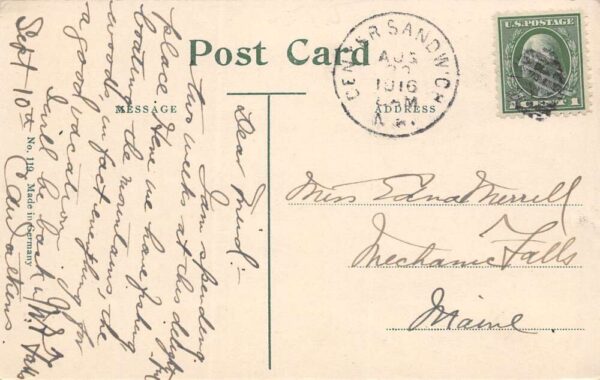 Post Card
MESSAGE
ADDRESS
CENTER SANDWICH
AUG
1916
AM
N.H.
U.S. POSTAGE
1 CENT 1
Dear Friend:-
I am spending
two weeks at this delightful
place. Here we have fishing
boating, the mountains, the
woods, in fact everything for
a good vacation.
I will be back in M. Falls
Sept 10th
Miss Edna Merrill
Mechanic Falls
Maine
No. 119 Made in Germany